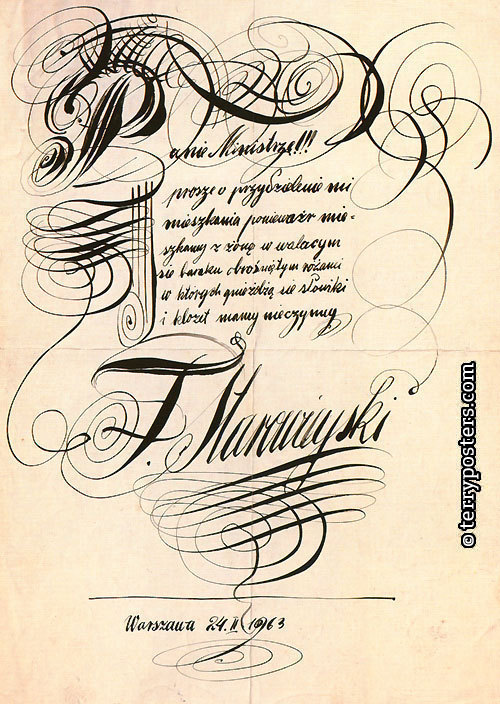 Panie Ministrze!!!
proszę o przydzielenie mi
mieszkania ponieważ mie-
szkamy z żoną w walącym
się baraku obrośniętym różami
w których gnieżdżą się słowiki
i klozet mamy nieczynny
F. Starowieyski
Warszawa 24.II 1963
© terryposters.com